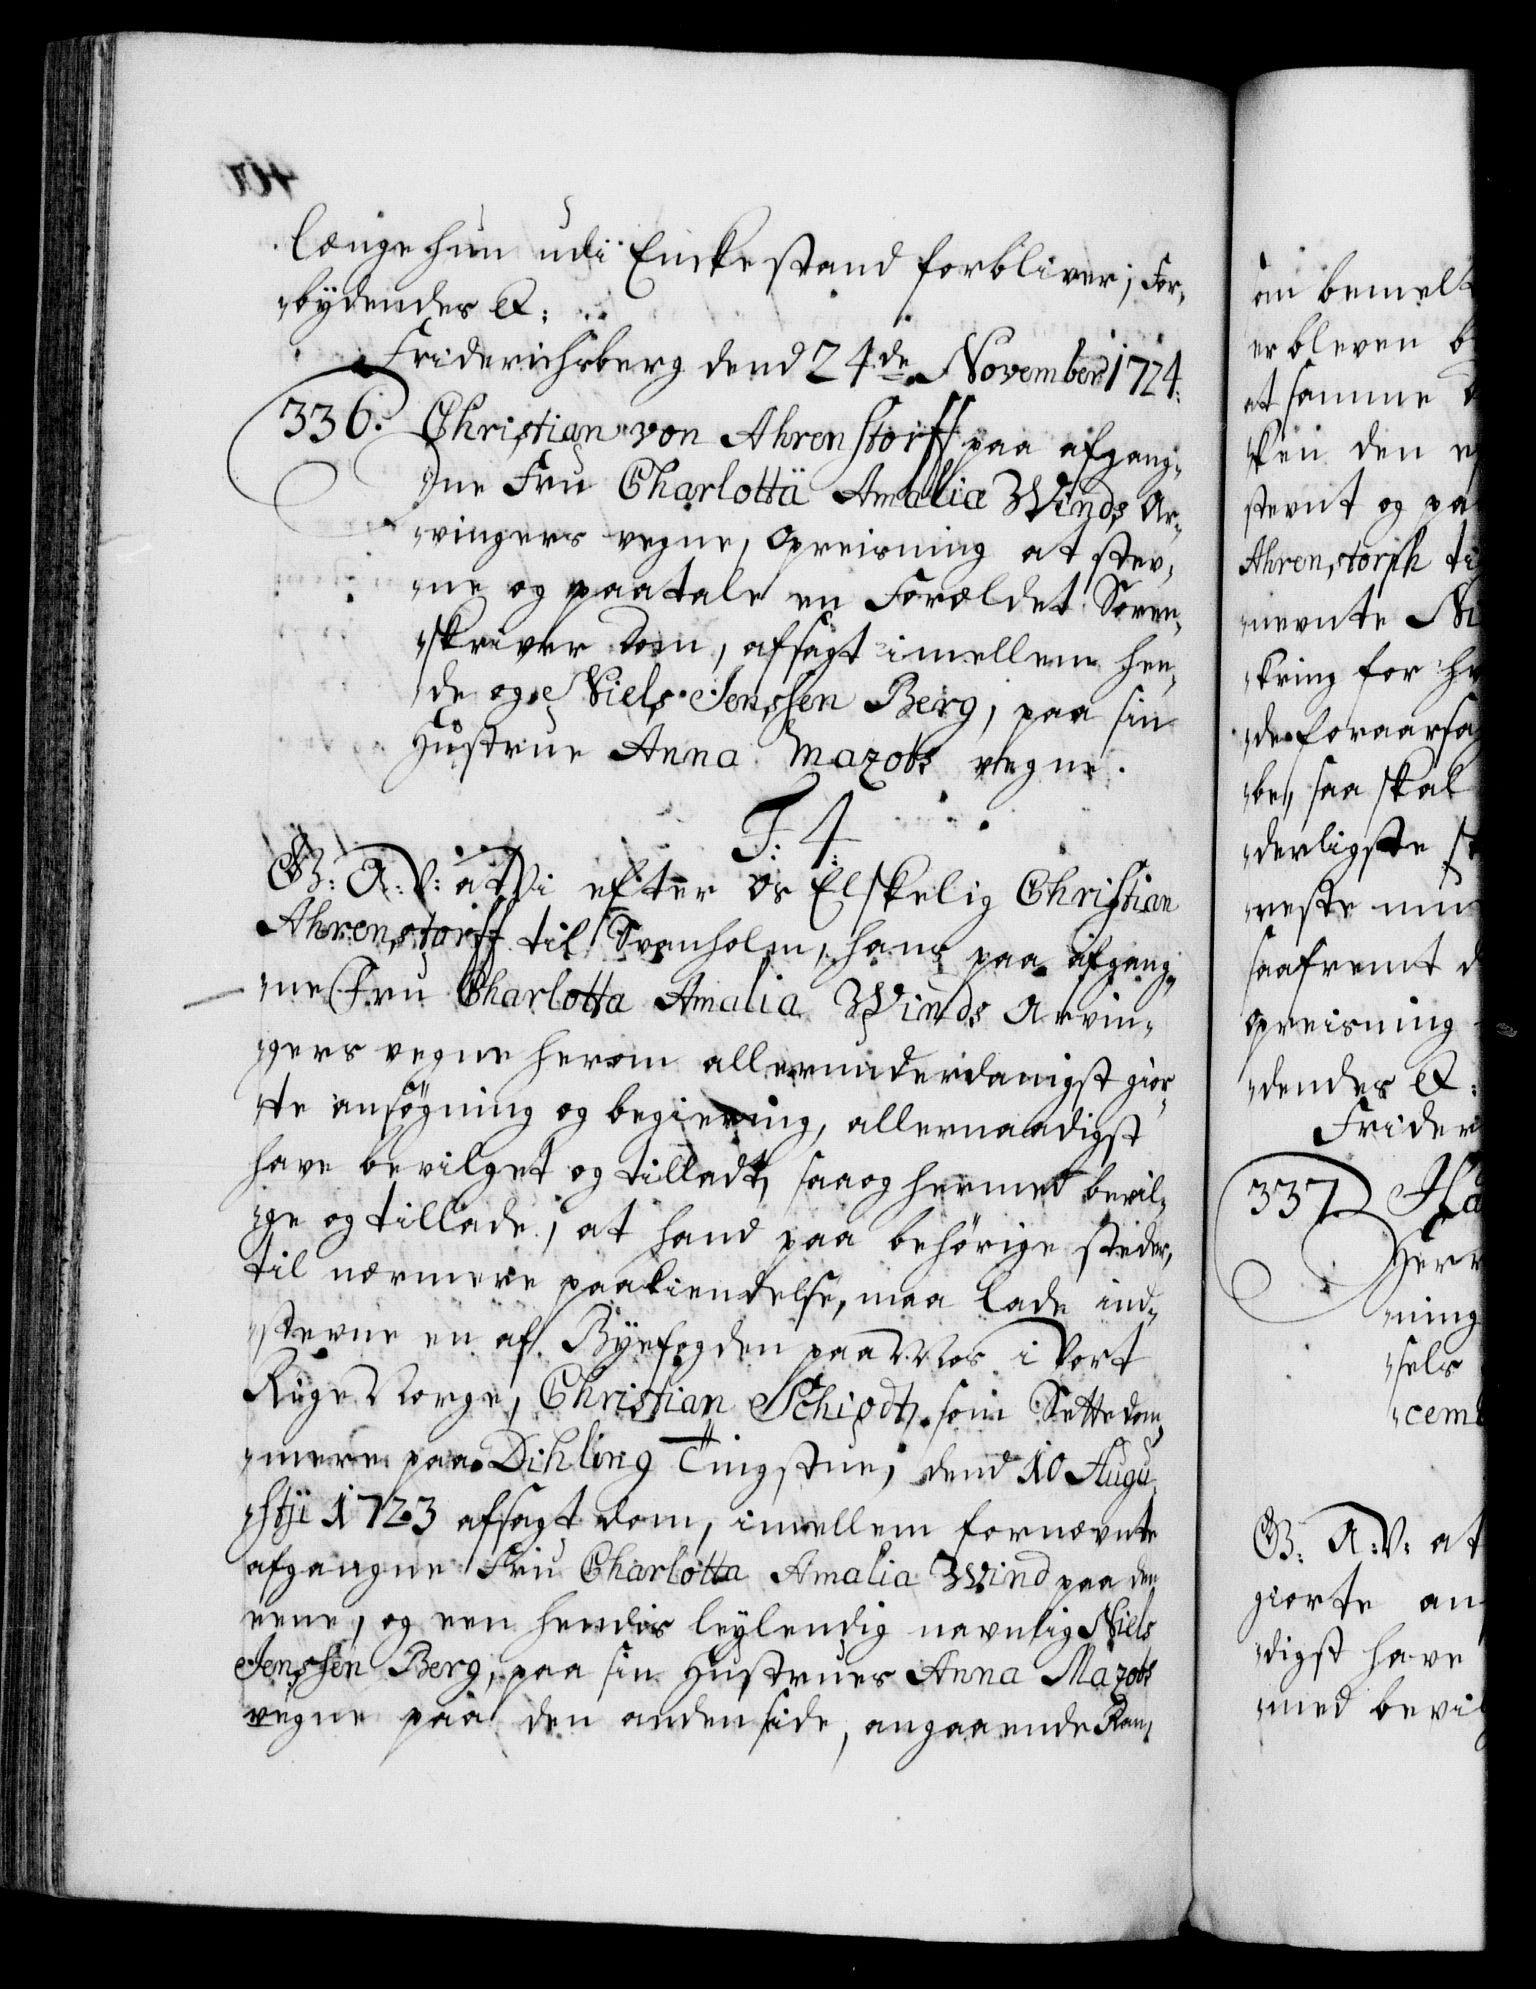 længe hun udi Enckestand forbliver; For-
bydendes &:
Friderichsberg dend 24de November 1724.
336. Christian von Ahrenstorff paa afgang-
ne Fru Charlotta Amaliæ Winds Ar-
vingers vegne, Opreisning at stev-
ne og paatale en Forældet Soren-
skriver Dom, afsagt imellem hen-
de og Niels Jenssen Berg, paa sin
Hustrue Anna Mazobs vegne.
F. 4.
G: A: V: at Vi efter Os Elskelig Christian
Ahrenstorff til Svanholm, hans paa afgang-
ne Fru Charlotta Amalia Winds Arvin-
gers vegne herom allerunderdanigst gior-
te ansøgning og begiering, allernaadigst
have bevilget og tilladt, saa og hermed bevil-
ge og tillade, at hand paa behørige steder,
til nærmere paakiendelse, maa lade ind-
stevne en af Byefogden paa Mos i Vort
Rige Norge, Christian Schiødt, som Settedom-
mere paa Dihling Tingstue, dend 10 Augu
stji 1723 afsagt dom, imellem fornævnte
afgangne Fru Charlotta Amalia Wind paa den
eene, og een hendis leylendig navnlig Niels
Jenssen Berg, paa sin Hustrues Anna Mazobs
vegne paa den anden side, angaaende Ran-
om bemelt
er bleven b
at samme
ken den
stevnt og pa
Ahrenstorph ti
nevnte Ni
kring for h
de foraarsag
be, saa skal
derligste s
neste
saafremt d
Opreisning
dendes &:
Frideri
337 Ha
Herr
ning
sels
cemb
G: A: V: at
giorte an
digst have
med bevil